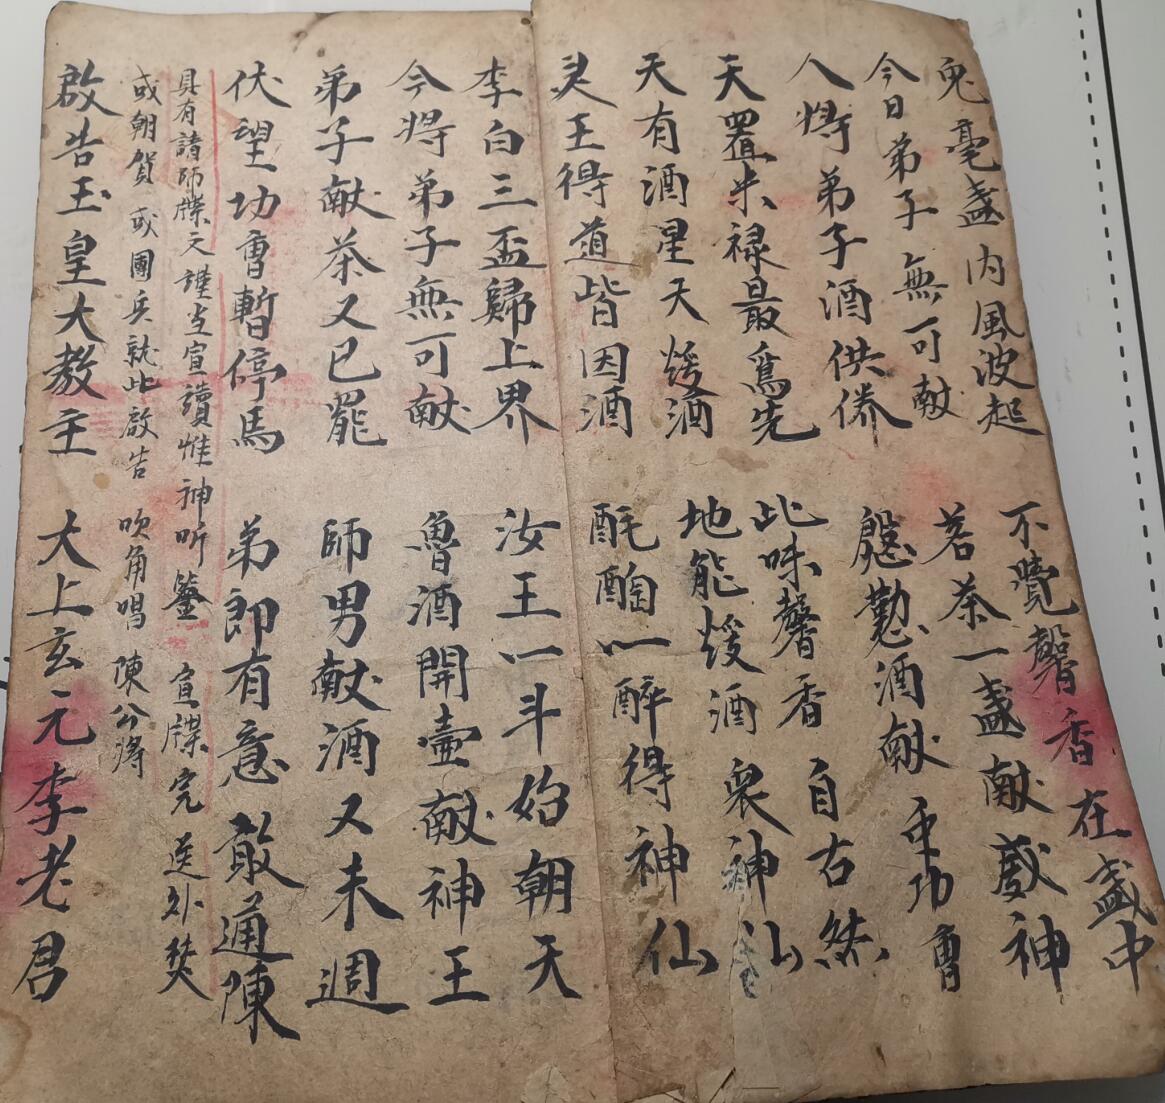 兎毫盞内風波起 不覺馨香在盞中
今日弟子無可献 茗茶一盞献衆神
人将弟子酒供养 慇懃酒献平功曹
天置米禄最爲先 此味馨香自古然
天有酒星天煖酒 地能煖酒衆神仙
灵王得道皆因酒 酕醄一醉得神仙
李白三盃歸上界 汝王一斗始朝天
今将弟子無可献 魯酒開壷献神王
弟子献茶又已罷 師男献酒又未週
伏望功曹暫停馬 弟郎有意敢通陳
具有諸師牒文謹当宣讀惟神听鑒 宣牒完 送外焚
或朝賀 或團兵就此啟告 吹角唱 陳公将
啟告玉皇大教主 大上玄元李老君